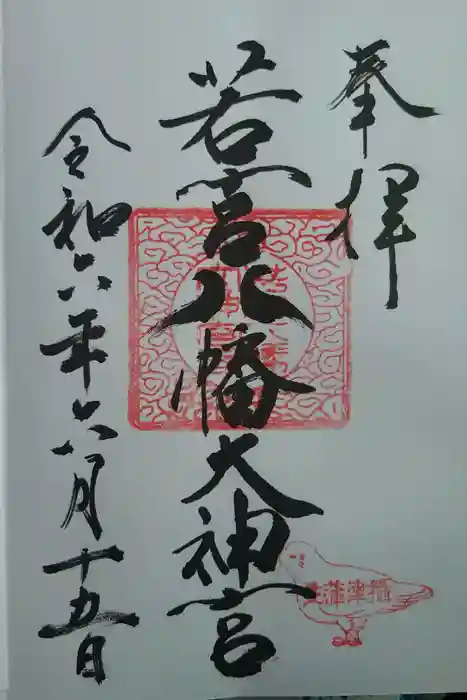 奉拝
若宮八幡大神宮
令和六年六月十五日